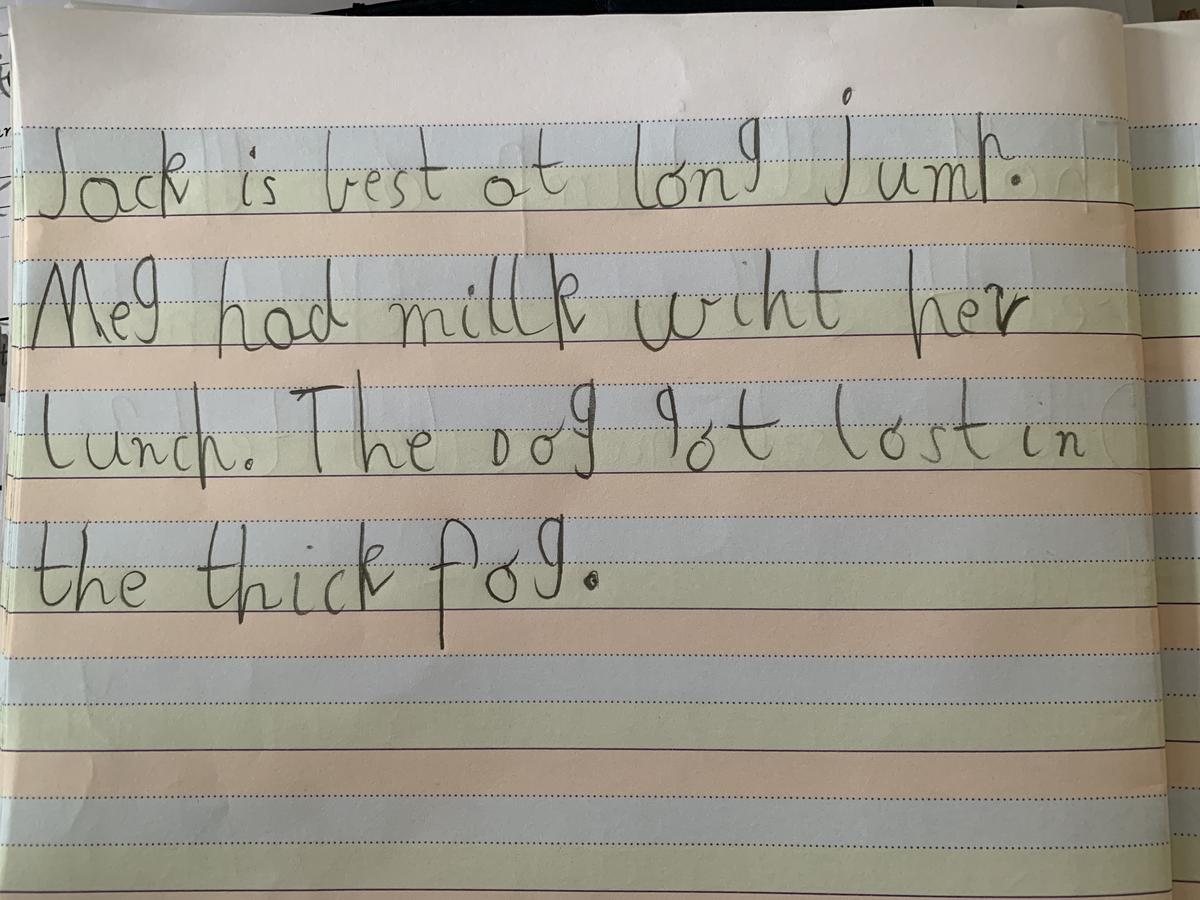 Jack is best at long jump.
Meg had millk wiht her
lunch. The Dog got lost in
the thick fog.